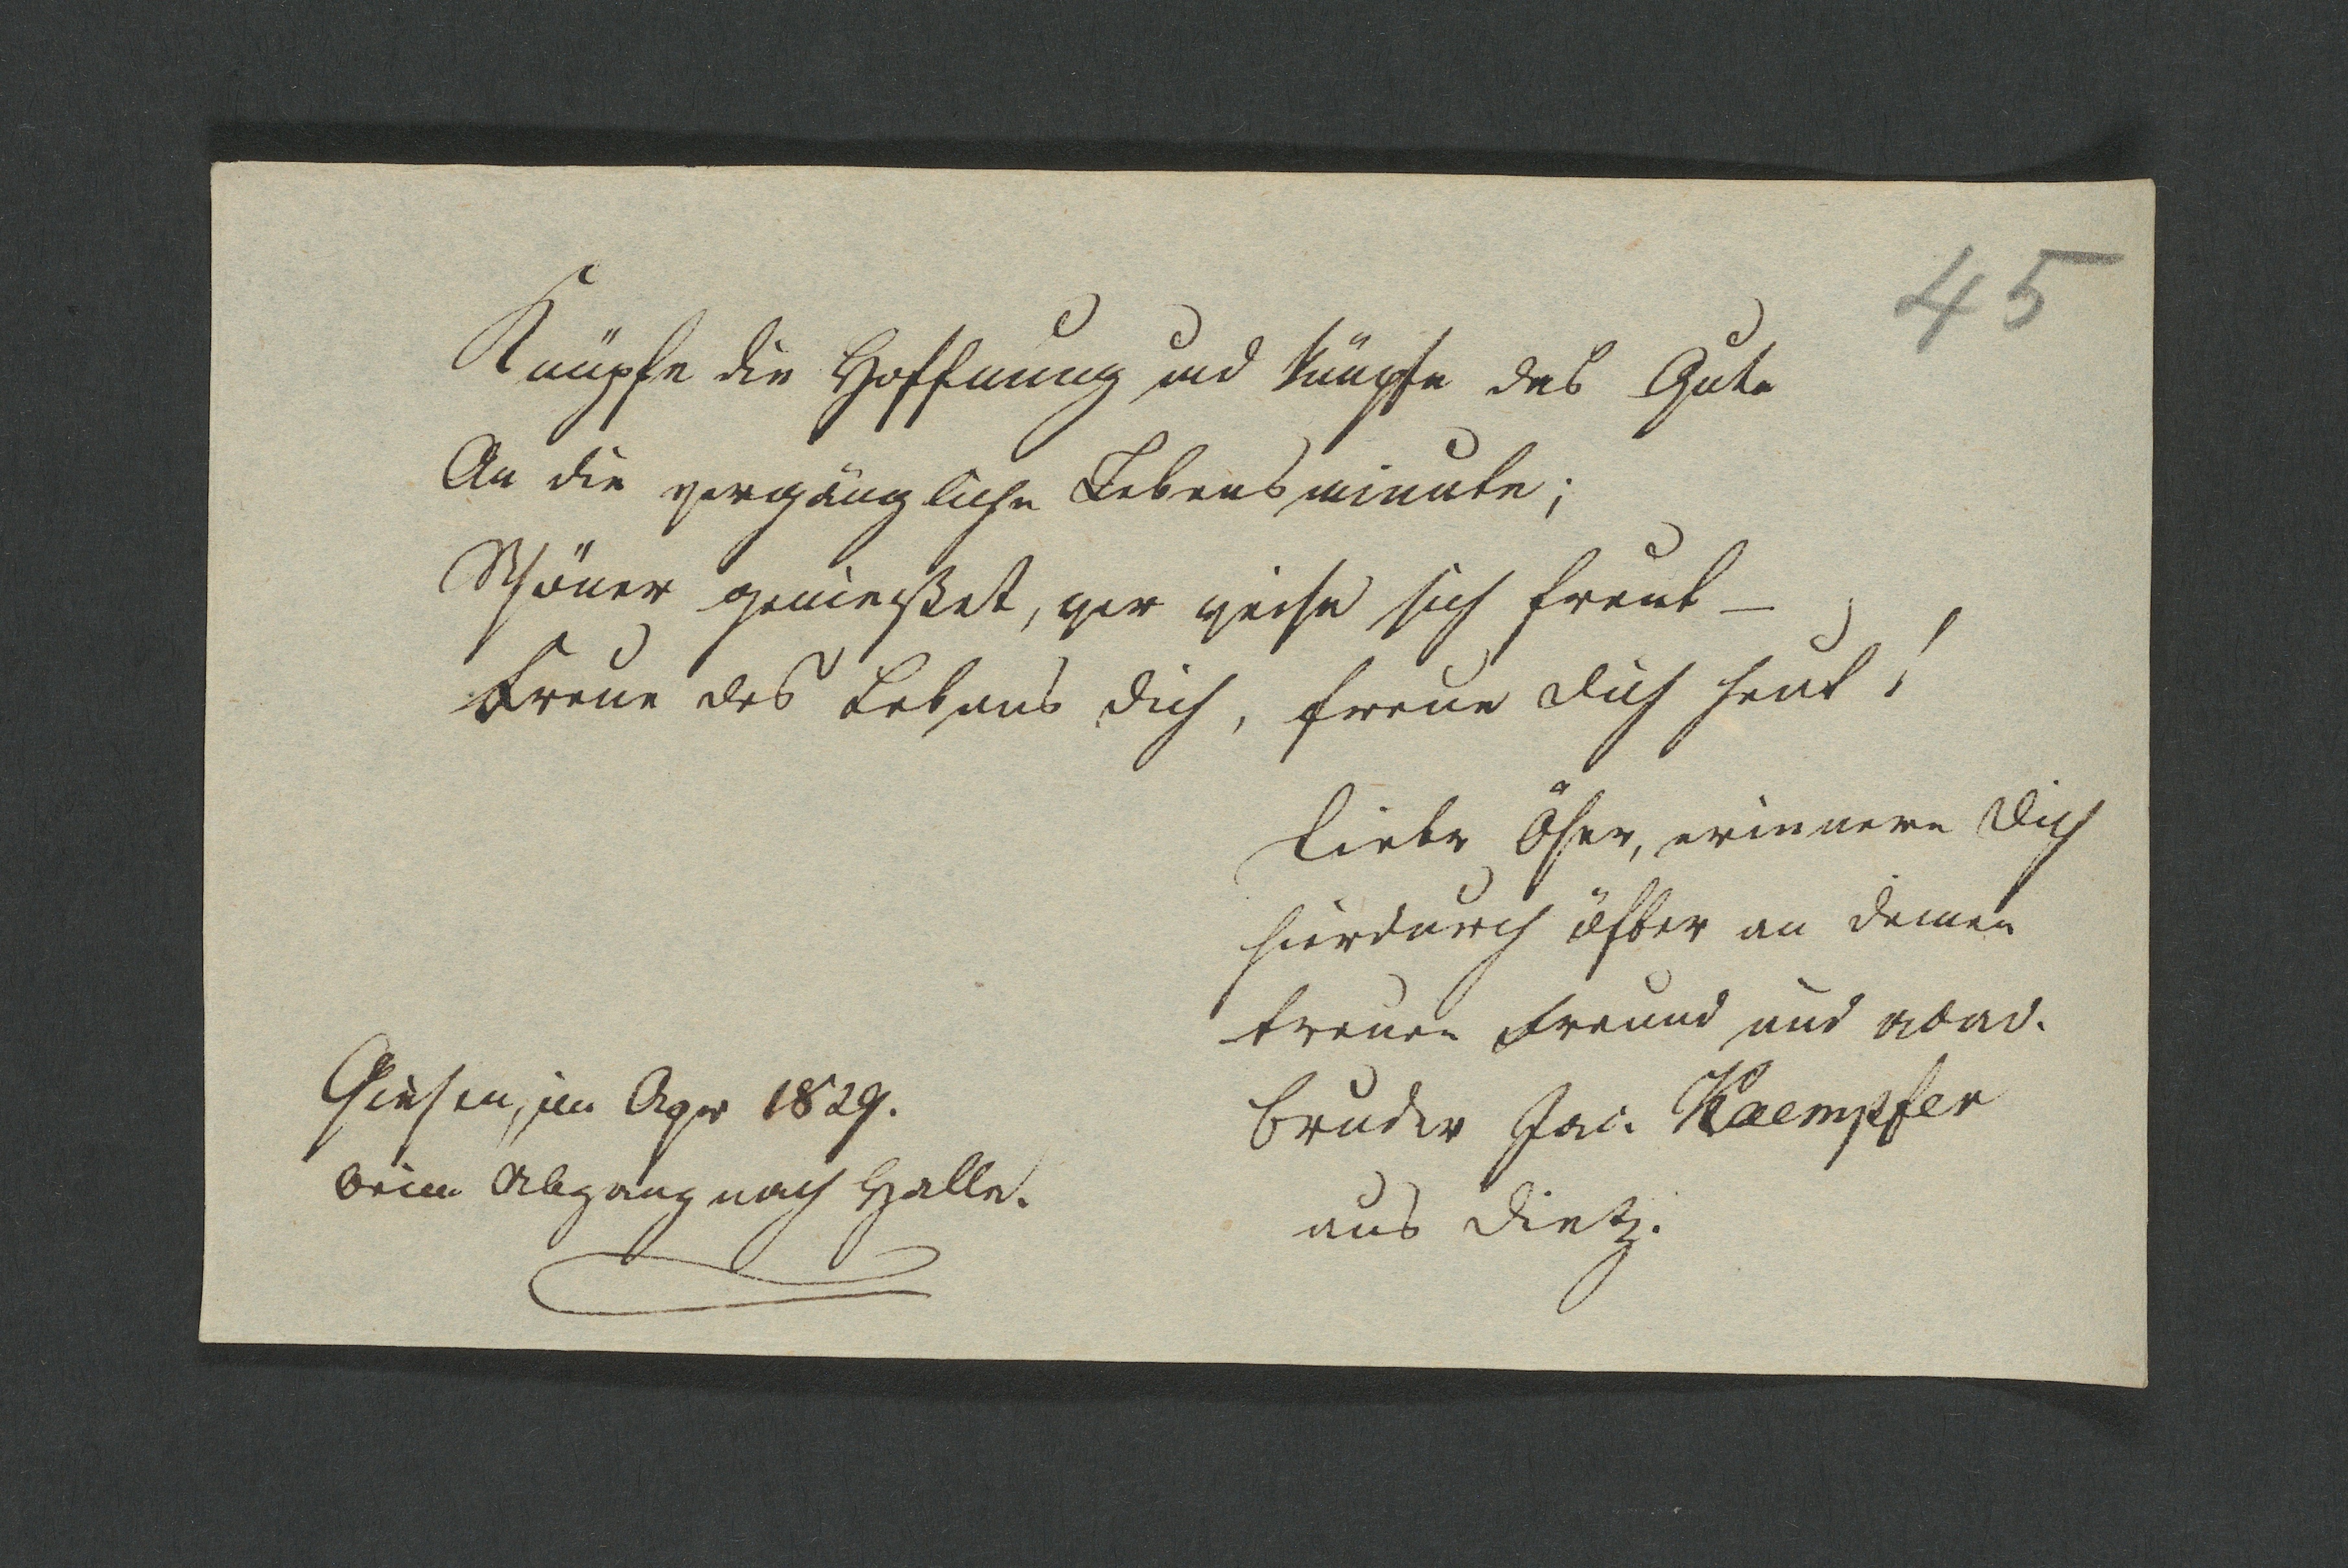 45
Knüpfe die Hoffnung und knüpfe das Gute
An die vergängliche Lebensminute;
Schöner genießet, wer weise sich freut –
Freue des Lebens dich, freue dich heut!
Lieber Öser, erinnere Dich
hierdurch öfter an deinen
treuen Freund und acad.
Bruder Jac. Kaempfer
aus Dietz.
Giesen, im Apr 1829.
beim Abgang nach Halle.